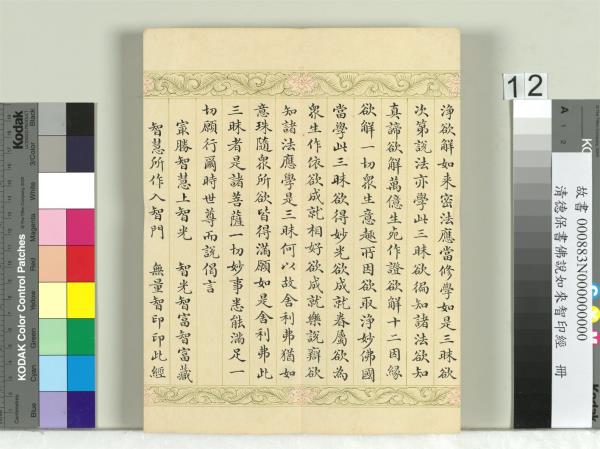 淨欲解如来密法應當修學如是三昧欲
次第說法亦學此三昧欲徧知諸法欲知
真諦欲解萬億生死作證欲解十二因緣
欲解一切衆生意趣所因欲取淨妙佛國
當學此三昧欲得妙光欲成就眷屬欲為
衆生作依欲成就相好欲成就樂說辯欲
知諸法應學是三昧何以故舍利弗猶如
意珠隨衆所欲皆得滿願如是舍利弗此
三昧者是諸菩薩一切妙事悉能滿足一
切願行爾時世尊而說偈言
冣勝智慧上智光 智光智富智富藏
智慧所作入智門 無量智印印此經
故書 000883N000000000
清德保書佛說如來智印經 冊
12
A 1 2
Kodak
KODAK Color Control Patches
Blue
Cyan
Green
Yellow
Red
Magenta
White
3/Color
Black